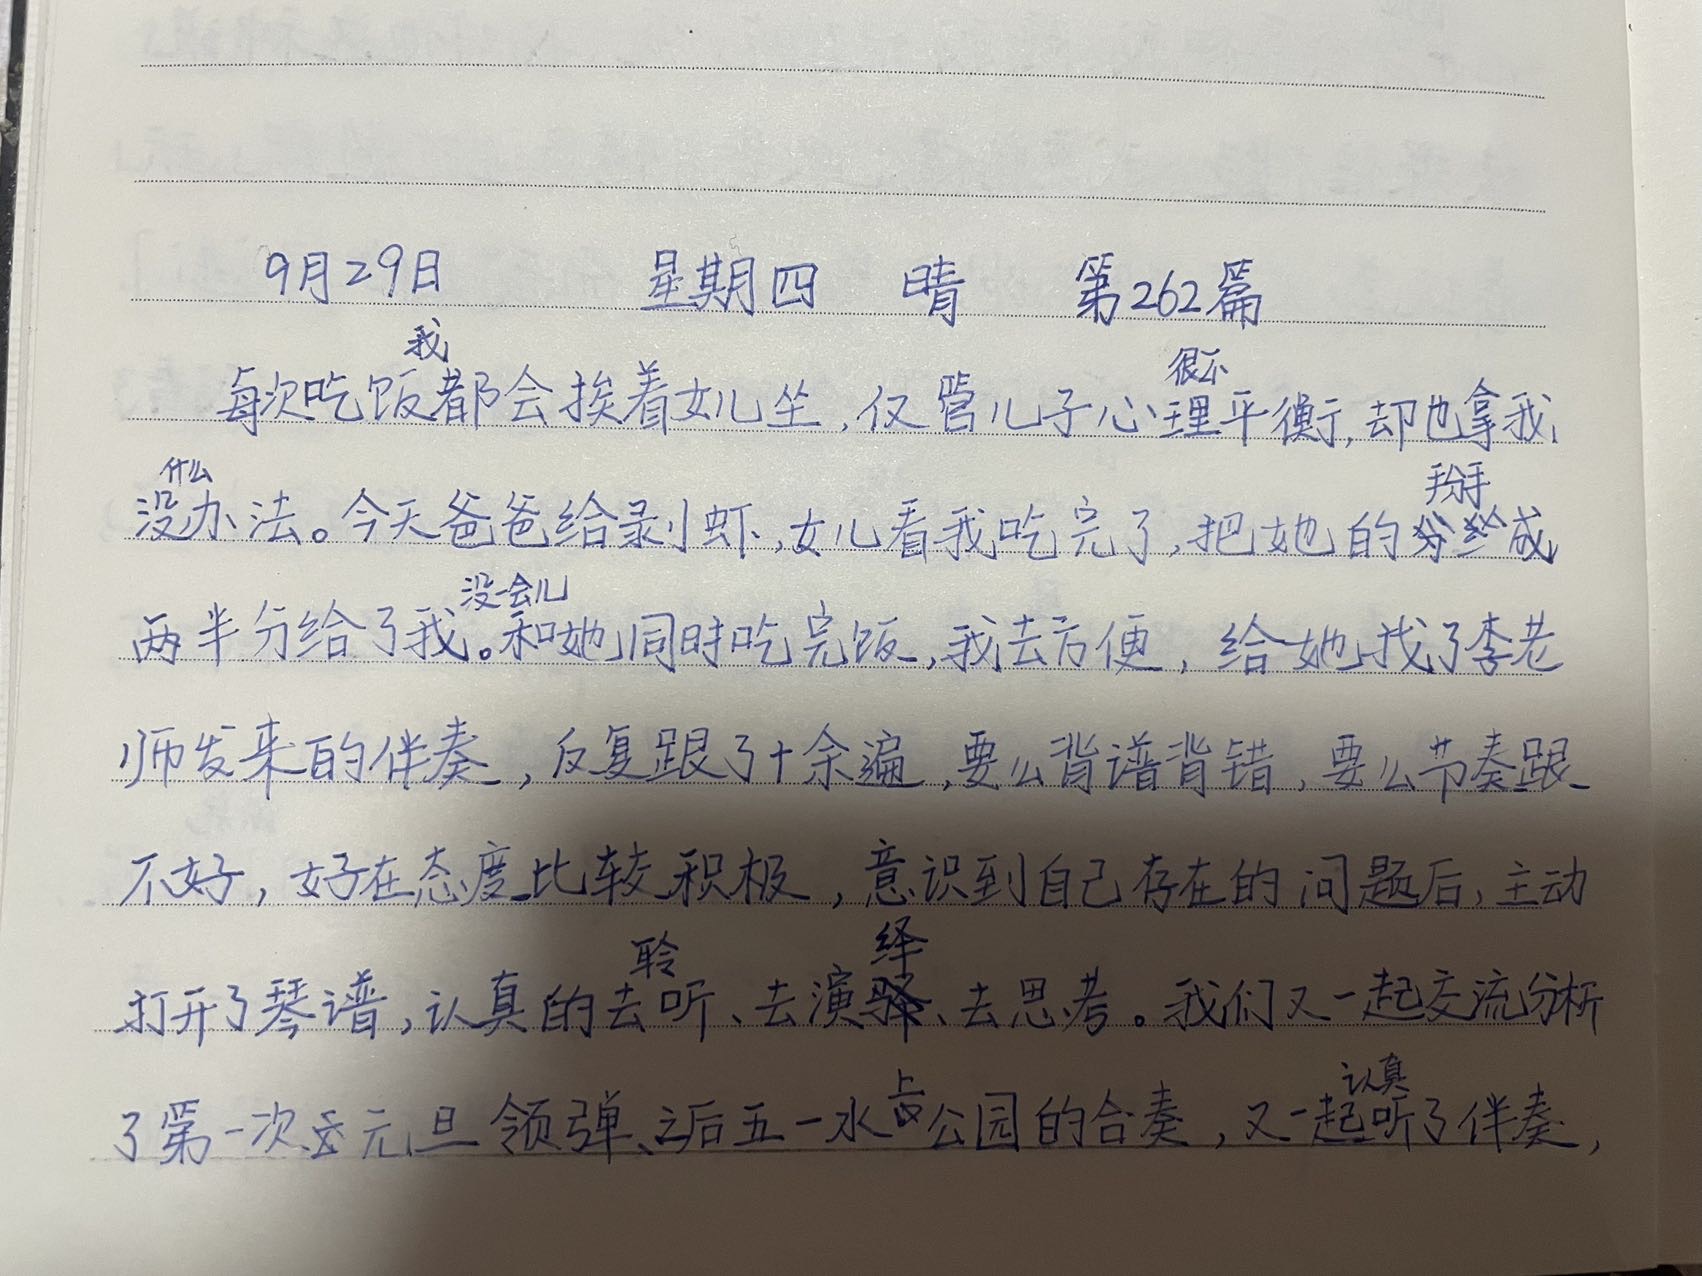 9月29日 星期四 晴 第262篇
每次吃饭我都会挨着女儿坐,仅管儿子心理很不平衡,却也拿我
没什么办法。今天爸爸给剥虾,女儿看我吃完了,把她的掰成
两半分给了我。没一会儿和她同时吃完饭,我去方便,给她找了李老
师发来的伴奏,反复跟了十余遍,要么背谱背错,要么节奏跟
不好,好在态度比较积极,意识到自己存在的问题后,主动
打开了琴谱,认真的去聆听、去演绎、去思考。我们又一起交流分析
了第一次元旦领弹、之后五一水上公园的合奏,又一起认真听了伴奏,